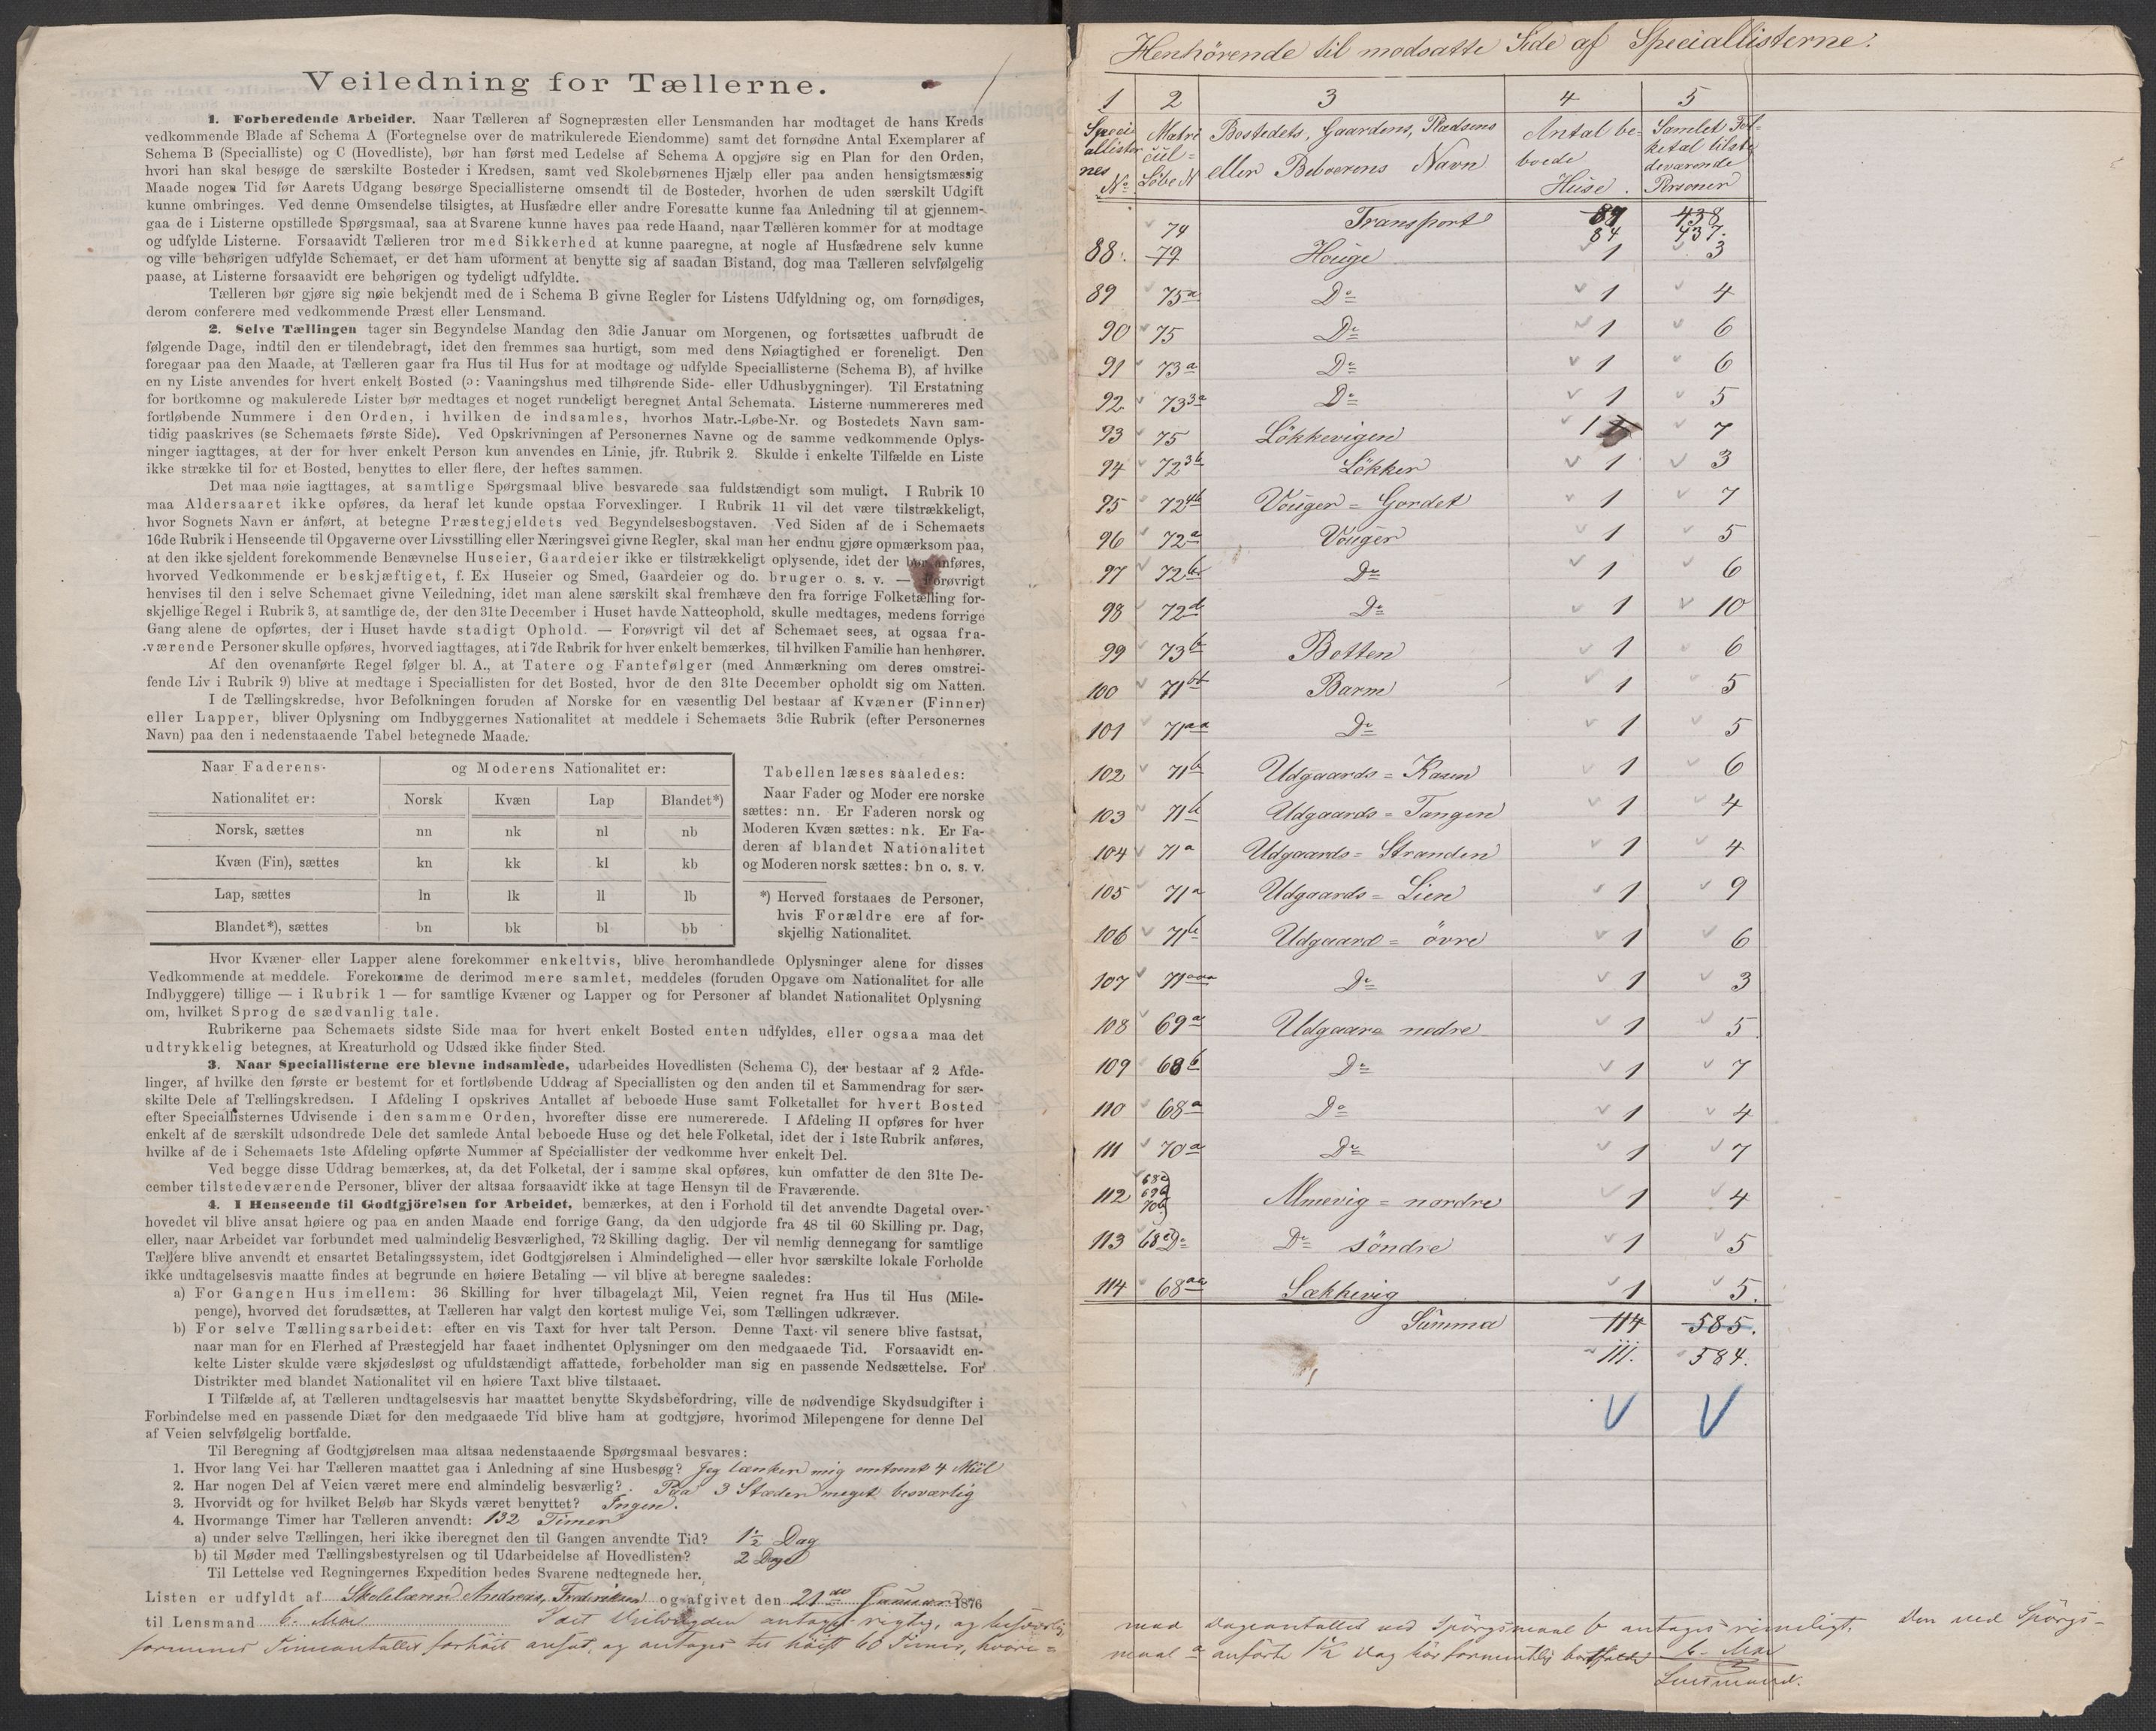 Veiledning for Tællerne.
1. Forberedende Arbeider. Naar Tælleren af Sognepræsten eller Lensmanden har modtaget de hans Kreds
vedkommende Blade af Schema A (Fortegnelse over de matrikulerede Eiendomme) samt det fornødne Antal Exemplarer af
Schema B (Specialliste) og C (Hovedliste), bør han først med Ledelse af Schema A opgjøre sig en Plan for den Orden,
hvori han skal besøge de særskilte Bosteder i Kredsen, samt ved Skolebørnenes Hjælp eller paa anden hensigtsmæssig
Maade nogen Tid før Aarets Udgang besørge Speciallisterne omsendt til de Bosteder, hvorhen de uden særskilt Udgift
kunne ombringes. Ved denne Omsendelse tilsigtes, at Husfædre eller andre Foresatte kunne faa Anledning til at gjennem-
gaa de i Listerne opstillede Spørgsmaal, saa at Svarene kunne haves paa rede Haand, naar Tælleren kommer for at modtage
og udfylde Listerne. Forsaavidt Tælleren tror med Sikkerhed at kunne paaregne, at nogle af Husfædrene selv kunne
og ville behørigen udfylde Schemaet, er det ham uforment at benytte sig af saadan Bistand, dog maa Tælleren selvfølgelig
paase, at Listerne forsaavidt ere behørigen og tydeligt udfyldte.
Tælleren bør gjøre sig nøie bekjendt med de i Schema B givne Regler for Listens Udfyldning og, om fornødiges,
derom conferere med vedkommende Præst eller Lensmand.
2. Selve Tællingen tager sin Begyndelse Mandag den 3die Januar om Morgenen, og fortsættes uafbrudt de
følgende Dage, indtil den er tilendebragt, idet den fremmes saa hurtigt, som med dens Nøiagtighed er foreneligt. Den
foregaar paa den Maade, at Tælleren gaar fra Hus til Hus for at modtage og udfylde Speciallisterne (Schema B), af hvilke
en ny Liste anvendes for hvert enkelt Bosted (ɔ: Vaaningshus med tilhørende Side- eller Udhusbygninger). Til Erstatning
for bortkomne og makulerede Lister bør medtages et noget rundeligt beregnet Antal Schemata. Listerne nummereres med
fortløbende Nummere i den Orden, i hvilken de indsamles, hvorhos Matr.-Løbe-Nr. og Bostedets Navn sam-
tidig paaskrives (se Schemaets første Side). Ved Opskrivningen af Personernes Navne og de samme vedkommende Oplys-
ninger iagttages, at der for hver enkelt Person kun anvendes en Linie, jfr. Rubrik 2. Skulde i enkelte Tilfælde en Liste
ikke strække til for et Bosted, benyttes to eller flere, der heftes sammen.
Det maa nøie iagttages, at samtlige Spørgsmaal blive besvarede saa fuldstændigt som muligt. I Rubrik 10
maa Aldersaaret ikke opføres, da heraf let kunde opstaa Forvexlinger. I Rubrik 11 vil det være tilstrækkeligt,
hvor Sognets Navn er anført, at betegne Præstegjeldets ved Begyndelsesbogstaven. Ved Siden af de i Schemaets
16de Rubrik i Henseende til Opgaverne over Livsstilling eller Næringsvei givne Regler, skal man her endnu gjøre opmærksom paa,
at den ikke sjeldent forekommende Benævnelse Huseier, Gaardeier ikke er tilstrækkeligt oplysende, idet der bør anføres,
hvorved Vedkommende er beskjæftiget, f. Ex Huseier og Smed, Gaardeier og do. bruger o. s. v. — Forøvrigt
henvises til den i selve Schemaet givne Veiledning, idet man alene særskilt skal fremhæve den fra forrige Folketælling for-
skjellige Regel i Rubrik 3, at samtlige de, der den 31te December i Huset havde Natteophold, skulle medtages, medens forrige
Gang alene de opførtes, der i Huset havde stadigt Ophold. — Forøvrigt vil det af Schemaet sees, at ogsaa fra-
værende Personer skulle opføres, hvorved iagttages, at i 7de Rubrik for hver enkelt bemærkes, til hvilken Familie han henhører.
Af den ovenanførte Regel følger bl. A., at Tatere og Fantefølger (med Anmærkning om deres omstrei-
fende Liv i Rubrik 9) blive at medtage i Speciallisten for det Bosted, hvor de den 31te December opholdt sig om Natten.
I de Tællingskredse, hvor Befolkningen foruden af Norske for en væsentlig Del bestaar af Kvæner (Finner)
eller Lapper, bliver Oplysning om Indbyggernes Nationalitet at meddele i Schemaets 3die Rubrik (efter Personernes
Navn) paa den i nedenstaaende Tabel betegnede Maade.
Naar Faderens- og Moderens Nationalitet er:
Nationalitet er: Norsk Kvæn Lap Blandet*)
Norsk, sættes nn nk nl nb
Kvæn (Fin), sættes kn kk kl kb
Lap, sættes ln lk ll lb
Blandet*), sættes bn bk bl bb
Tabellen læses saaledes:
Naar Fader og Moder ere norske
sættes: nn. Er Faderen norsk og
Moderen Kvæn sættes: nk. Er Fa-
deren af blandet Nationalitet
og Moderen norsk sættes: bn o. s. v.
*) Herved forstaaes de Personer,
hvis Forældre ere af for-
skjellig Nationalitet.
Hvor Kvæner eller Lapper alene forekommer enkeltvis, blive heromhandlede Oplysninger alene for disses
Vedkommende at meddele. Forekomme de derimod mere samlet, meddeles (foruden Opgave om Nationalitet for alle
Indbyggere) tillige — i Rubrik 1 — for samtlige Kvæner og Lapper og for Personer af blandet Nationalitet Oplysning
om, hvilket Sprog de sædvanlig tale.
Rubrikerne paa Schemaets sidste Side maa for hvert enkelt Bosted enten udfyldes, eller ogsaa maa det
udtrykkelig betegnes, at Kreaturhold og Udsæd ikke finder Sted.
3. Naar Speciallisterne ere blevne indsamlede, udarbeides Hovedlisten (Schema C), der bestaar af 2 Afde-
linger, af hvilke den første er bestemt for et fortløbende Uddrag af Speciallisten og den anden til et Sammendrag for sær-
skilte Dele af Tællingskredsen. I Afdeling I opskrives Antallet af beboede Huse samt Folketallet for hvert Bosted
efter Speciallisternes Udvisende i den samme Orden, hvorefter disse ere numererede. I Afdeling II opføres for hver
enkelt af de særskilt udsondrede Dele det samlede Antal beboede Huse og det hele Folketal, idet der i 1ste Rubrik anføres,
hvilke af de i Schemaets 1ste Afdeling opførte Nummer af Speciallister der vedkomme hver enkelt Del.
Ved begge disse Uddrag bemærkes, at, da det Folketal, der i samme skal opføres, kun omfatter de den 31te De-
cember tilstedeværende Personer, bliver der altsaa forsaavidt ikke at tage Hensyn til de Fraværende.
4. I Henseende til Godtgjörelsen for Arbeidet, bemærkes, at den i Forhold til det anvendte Dagetal over-
hovedet vil blive ansat høiere og paa en anden Maade end forrige Gang, da den udgjorde fra 48 til 60 Skilling pr. Dag,
eller, naar Arbeidet var forbundet med ualmindelig Besværlighed, 72 Skilling daglig. Der vil nemlig dennegang for samtlige
Tællere blive anvendt et ensartet Betalingssystem, idet Godtgjørelsen i Almindelighed — eller hvor særskilte lokale Forholde
ikke undtagelsesvis maatte findes at begrunde en høiere Betaling — vil blive at beregne saaledes:
a) For Gangen Hus imellem: 36 Skilling for hver tilbagelagt Mil, Veien regnet fra Hus til Hus (Mile-
penge), hvorved det forudsættes, at Tælleren har valgt den kortest mulige Vei, som Tællingen udkræver.
b) For selve Tællingsarbeidet: efter en vis Taxt for hver talt Person. Denne Taxt vil senere blive fastsat,
naar man for en Flerhed af Præstegjeld har faaet indhentet Oplysninger om den medgaaede Tid. Forsaavidt en-
kelte Lister skulde være skjødesløst og ufuldstændigt affattede, forbeholder man sig en passende Nedsættelse. For
Distrikter med blandet Nationalitet vil en høiere Taxt blive tilstaaet.
I Tilfælde af, at Tælleren undtagelsesvis har maattet benytte Skydsbefordring, ville de nødvendige Skydsudgifter i
Forbindelse med en passende Diæt for den medgaaede Tid blive ham at godtgjøre, hvorimod Milepengene for denne Del
af Veien selvfølgelig bortfalde.
Til Beregning af Godtgjørelsen maa altsaa nedenstaaende Spørgsmaal besvares:
1. Hvor lang Vei har Tælleren maattet gaa i Anledning af sine Husbesøg? Jeg tænker mig omtrent 4 Miil
2. Har nogen Del af Veien været mere end almindelig besværlig? Paa 3 Stæder meget besværlig
3. Hvorvidt og for hvilket Beløb har Skyds været benyttet? Ingen.
4. Hvormange Timer har Tælleren anvendt: 132 Timer
a) under selve Tællingen, heri ikke iberegnet den til Gangen anvendte Tid? 1½ Dag
b) til Møder med Tællingsbestyrelsen og til Udarbeidelse af Hovedlisten? 2 Dage
Til Lettelse ved Regningernes Expedition bedes Svarene nedtegnede her.
Listen er udfyldt af Skolelærer Andreas Fredriksen og afgivet den 21de Januar 1876
til Lensmand C. Moe
Henhörende til modsatte Side af Speciallisterne.
1 2 3 4 5
Speci Matri Bostedets, Gaardens, Pladsens Antal be- Samlet Fol-
allister cül= eller Beboerens Navn boede ketal tilste
nes Löbe N Huse. deværende
No Personer
Transport 89 438
74 84 437.
88. 79 Houge 1 3
89 75a Do 1 4
90 75 Do 1 6
91 73a Do 1 6
92 73 3a Do 1 5
93 75 Lökkevigen 1 7
94 72 3b Lökker 1 3
95 72 4b Vouger = Gordet 1 7
96 72a Vouger 1 5
97 72b Do 1 6
98 72d Do 1 10
99 73b Botten 1 6
100 71bb Barm 1 5
101 71aa Do 1 5
102 71b Udgaards = Kasen 1 6
103 71b Udgaards = Tangen 1 4
104 71a Udgaards = Stranden 1 4
105 71a Udgaards = Lien 1 9
106 71b Udgaard = övre 1 6
107 71aaa Do 1 3
108 69a Udgaard nedre 1 5
109 68b Do 1 7
110 68a Do 1 4
111 70a Do 1 7
112 68c 69b 70b Almevig = nordre 1 4
113 68c Do Do söndre 1 5
114 68aa Sækkevig 1 5.
Summa 114 585.
111. 584.
med Dageantallet ved Spörgsmaal b antages rimeligt. Den ved Spörgs-
maal a anförte 1½ Dag bör formentlig bortfalde. C. Moe
Lensmand.